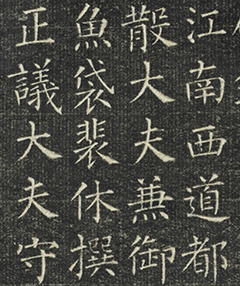 江南西道都
散大夫兼御
魚袋裴休撰
正議大夫守